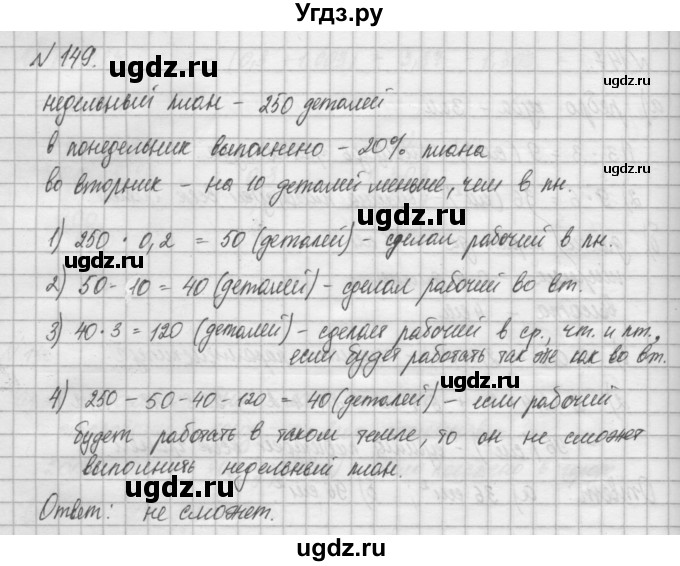 Угдз.ру
№ 149.
недельный план – 250 деталей
в понедельник выполнено – 20% плана
во вторник – на 10 деталей меньше, чем в пн.
1) 250 · 0,2 = 50 (деталей) – сделал рабочий в пн.
2) 50 - 10 = 40 (деталей) – сделал рабочий во вт.
3) 40 · 3 = 120 (деталей) – сделает рабочий в ср., чт. и пт.,
если будет работать так же как во вт.
4) 250 – 50 - 40 - 120 = 40 (деталей) – если рабочий
будет работать в таком темпе, то он не сможет
выполнить недельный план.
Ответ: не сможет.
ugdz.ru
ugdz.ru
ugdz.ru
ugdz.ru
ugdz.ru
ugdz.ru
ugdz.ru
ugdz.ru
ugdz.ru